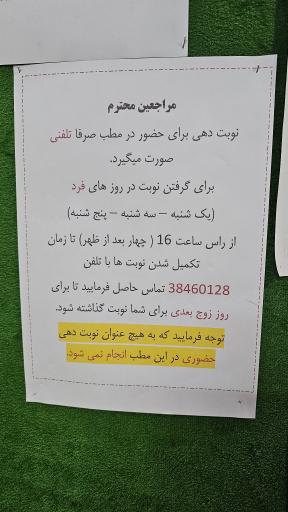 مراجعین محترم
نوبت دهی برای حضور در مطب صرفا تلفنی
صورت میگیرد.
برای گرفتن نوبت در روز های فرد
(یک شنبه – سه شنبه – پنج شنبه)
از راس ساعت 16 ( چهار بعد از ظهر) تا زمان
تکمیل شدن نوبت ها با تلفن
38460128 تماس حاصل فرمایید تا برای
روز زوج بعدی برای شما نوبت گذاشته شود.
توجه فرمایید که به هیچ عنوان نوبت دهی
حضوری در این مطب انجام نمی شود.